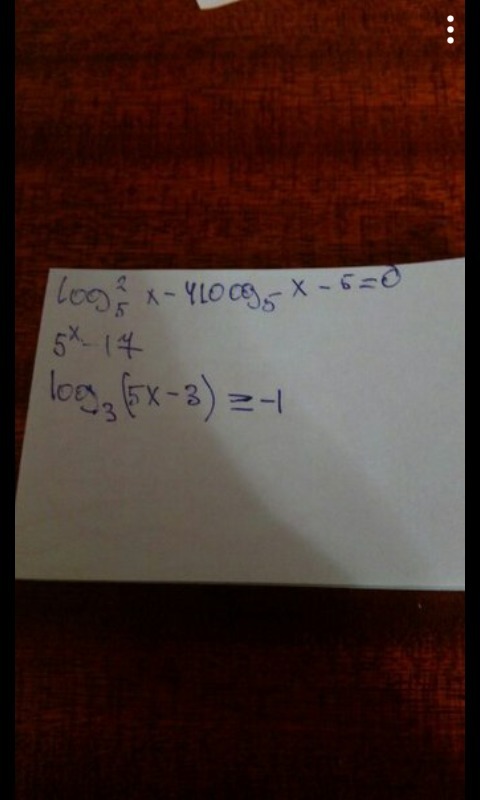 log₅² x - 4log₅ x - 5 = 0
5ˣ - 17
log₃(5x - 3) ≥ -1